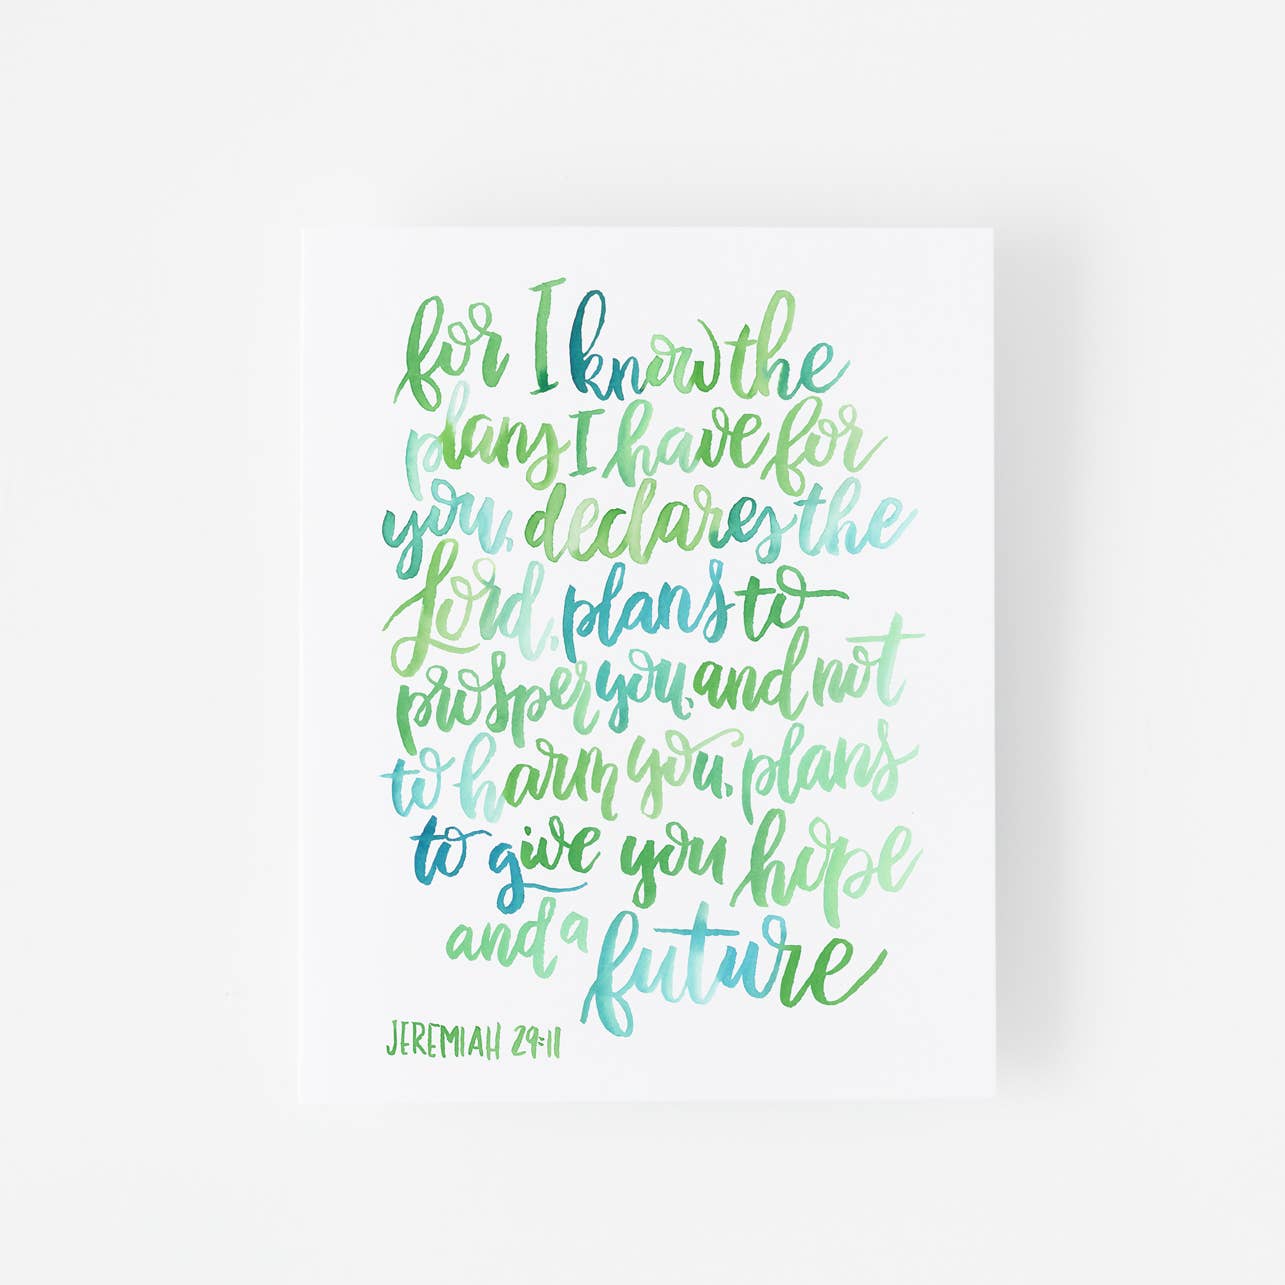 for I know the
plans I have for
you, declares the
Lord, plans to
prosper you, and not
to harm you, plans
to give you hope
and a future
JEREMIAH 29:11